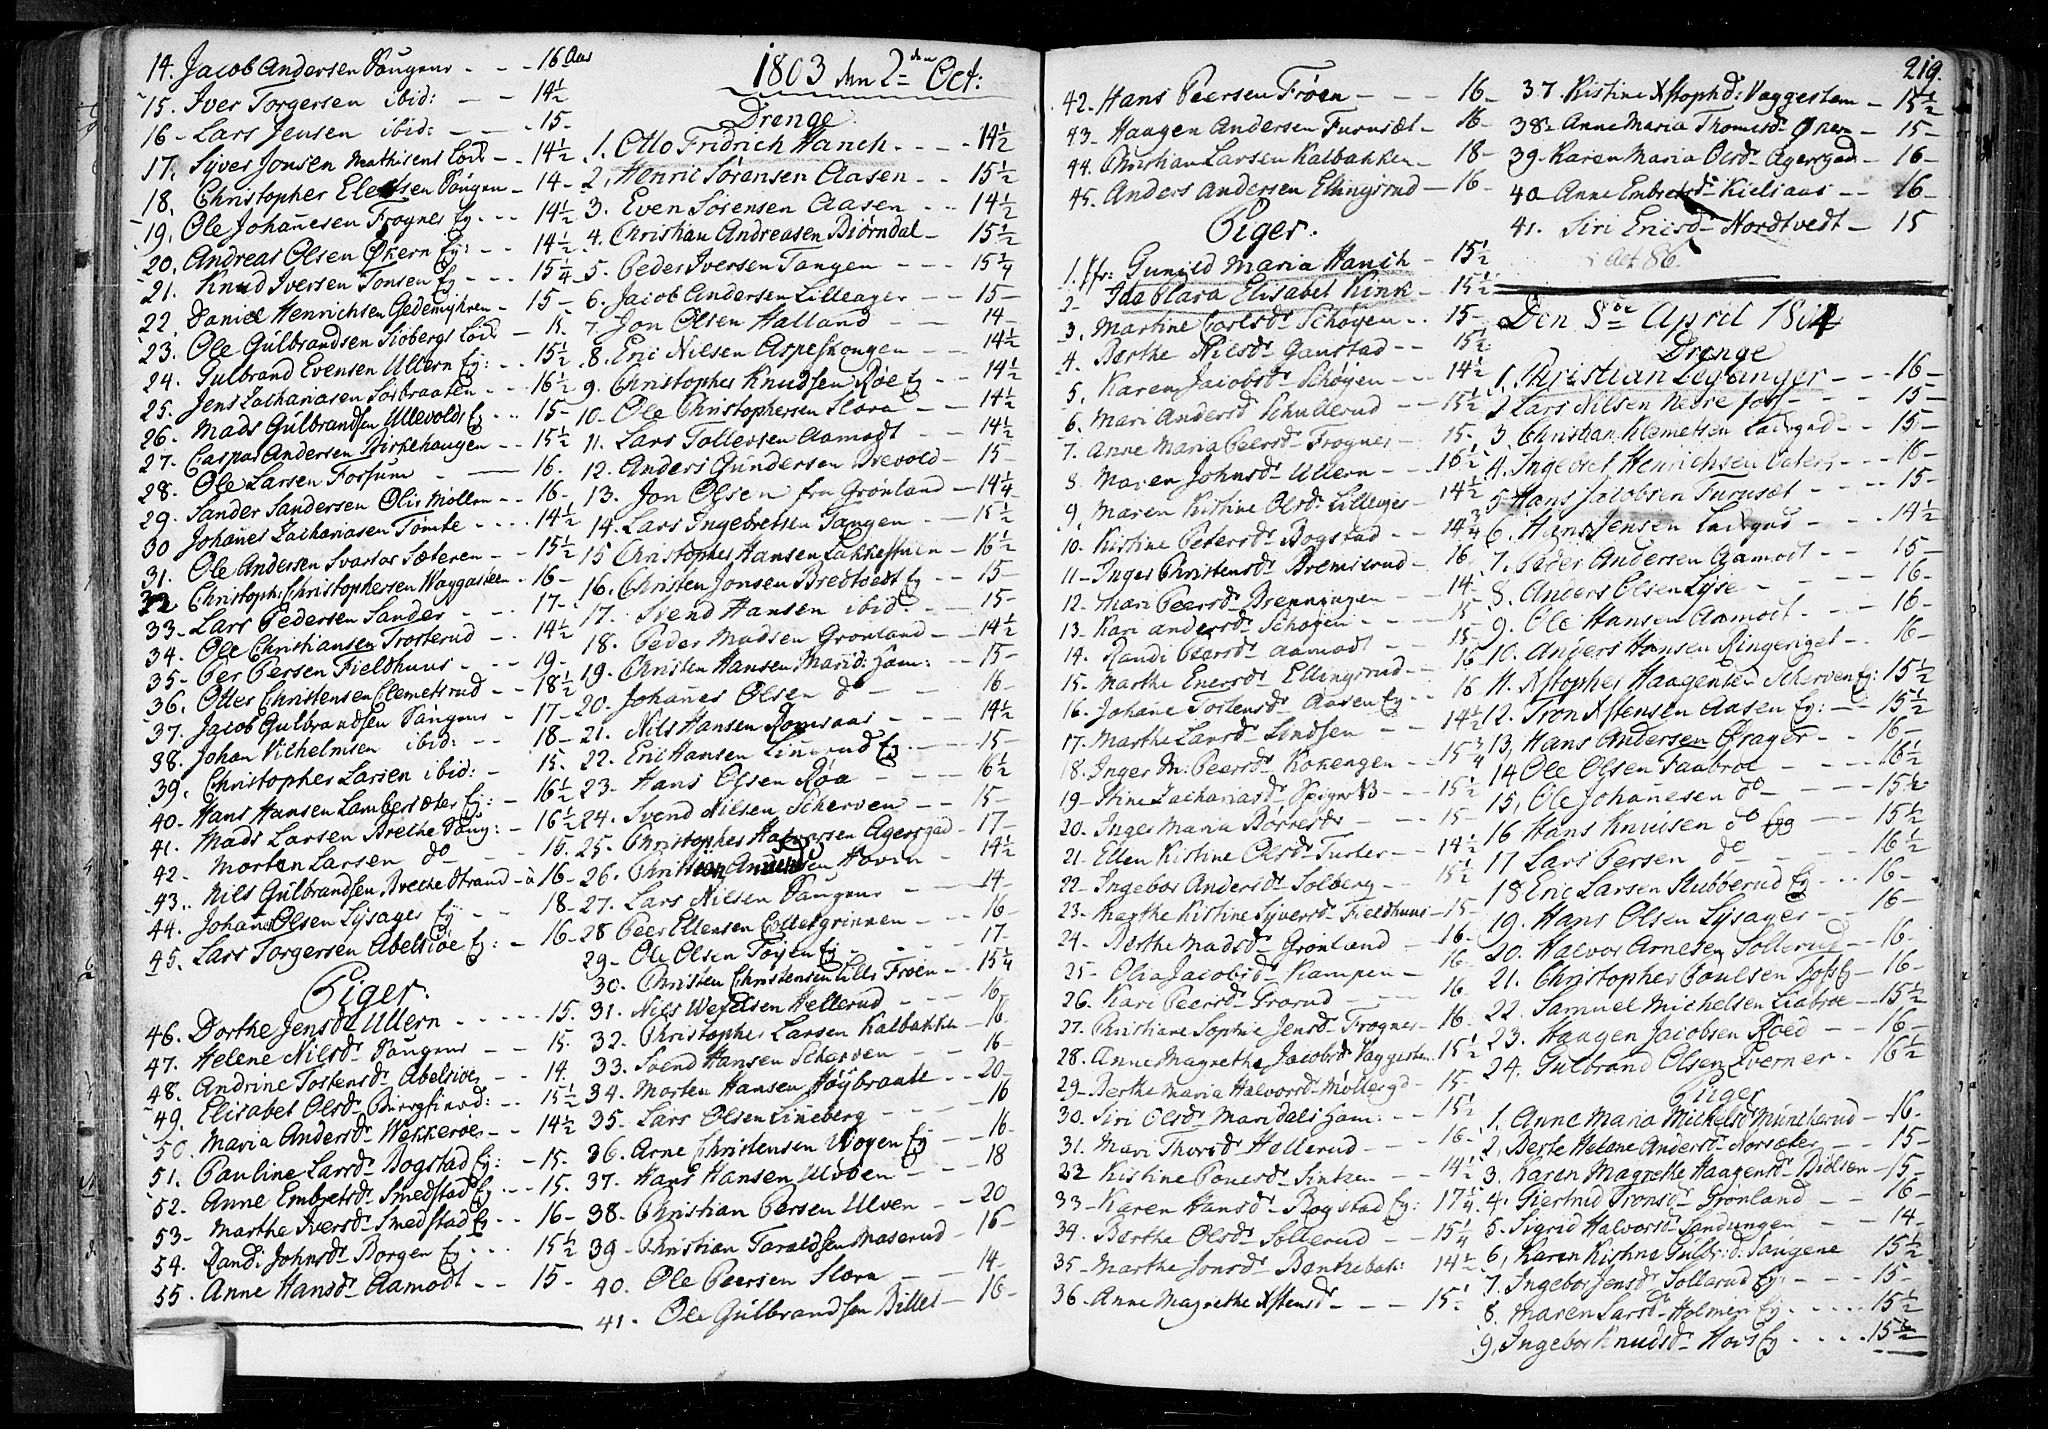 14. Jacob Andersen Saugene - - - 16 Aar
15. Iver Torgersen ibid: - - 14½
16 - Lars Jensen ibid: - - - 15 -
17. Syver Jonsen Mathisens Lød: - - 14½
18. Christopher Elefsen Saugen - 14 -
19. Ole Johanesen Frogner Eg. - - - 14½
20. Andreas Olsen Økern Eg: - - 14½
21. Knud Iversen Tonsen Eg - - - 15¼
22. Daniel Henrichsen Gedemyhren - 15 -
23. Ole Gulbrandsen Siøbergs Lød: - 15.
24. Gulbrand Evensen Ullern Eg: - - 15½
25. Jens Zachariasen Sorbraaten - - - 16½
26. Mads Gulbrandsen Ullevolds Eg - - - 15 -
27. Caspar Andersen Kirkehaugen - - 15½
28. Ole Larsen Forsum - 16.
29. Sander Sandersen Olis Mollen - - 16 -
30 Johanes Zachariasen Tomte - - - - 14½
31. Ole Andersen Svartor Sæteren - - 15½
32 Christoph: Christophersen Vaggesteen - 16 -
33 - Lars Pedersen Sander - - - 17 -
34. Ole Christiansen Trosterud - - 14½
35 - Per Persen Fieldhuus - - - 19 -
36. Otter Christensen Clemetsrud - - 18½
37. Jacob Gulbrandsen Saugene - 17 -
38. Johan Vilhelmsen ibid: - - 18 -
39. Christopher Larsen ibid: - 15.
40 - Hans Hansen Lambersæter Eg: - 16½
41. Mads Larsen Brethe Saug: - 16½
42 - Morten Larsen do - - - 16.
43. Nils Gulbrandsen Brethe Strand - 16 -
44. Johan Olsen Lysager Eg - - 18.
45. Lars Torgersen Abelsiøe Eg: - 16 -
Piger.
46. Dorthe Jensd: Ullern - - - - - 15.
47. Helene Nilsd: Saugene - - 15.
48. Andrine Tostensd: Abelsioe - 14.
49. Elisabet Olsd: Biergsierød: - - 15½
50. Maria Andersd: Vekkeroe - - 14½
51. Pauline Larsd: Bogstad Eg: - 15 -
52. Anne Embretsd: Smedstad Eg - - - 15.
53 - Marthe Iversd: Smedstad Eg - - 16 -
54. Randi Johnsd: Borgen Eg - - - 15½
55. Anne Hansd: Aamodt - - 15 -
1803 den 2den Oct:
Drenge
1. Otto Fridrich Hanch - - - - 14½
2. Henric Sørensen Aasen - - 15½
3. Even Sørensen Aasen - - 14½
4. Christian Andreasen Biørndal - 15½
5. Peder Iversen Tangen - - - 15¾
6. Jacob Andersen Lilleager - - 15 -
7. Jon Olsen Halland - - 14 -
8. Eric Nilsen Aspeskougen - - 14½
9. Christopher Knudsen Røe Eg - - 14½
10 - Ole Christophersen Slora - - 14½
11. Lars Tollefsen Aamodt - - 14½
12. Anders Gundersen Brevold - 15 -
13. Jon Olsen fra Grønland - 14¼
14. Lars Ingebretsen Tangen - - 15½
15 Christopher Hansen Lakkestuen - 16½
16. Christen Jonsen Bredtvedt Eg - - 15 -
17. Svend Hansen ibid - - 15 -
18. Peder Madsen Grønland - - 14½
19. Christen Hansen Marid: Ham: - - 15 -
20. Johanes Olsen do - - 16 -
21. Nils Hansen Romsaas - - - 14½
22. Eric Hansen Linerud Eg - - - 15 -
23. Hans Olsen Røa - - - - 16½
24. Svend Nilsen Scherven - - 15 -
25. Christopher Halvorsen Agersgad - 17 -
26. Christian Hovin - 14½
27. Lars Nilsen Saugene - - 14 -
28 Peer Ellensen Colletgrinnen - - - 16 -
29 - Ole Olsen Toyen Eg - - - - 17.
30. Christen Christensen Lille Frøen - - 15¼
31. Nils Wefelsen Hellerud - - - 16
32. Christopher Larsen Kalbakken - 16
33. Svend Hansen Scherven - - 16 -
34. Morten Hansen Høybraate - - 20 -
35. Lars Olsen Lineberg - - - - 16
36. Arne Christensen Woyen Eg - - 16 -
37. Hans Hansen Ulvøen - - - 18
38. Christian Persen Ulven - - 20
39 - Christian Taraldsen Maserud - 16 -
40. Ole Peersen Slora - - 14 -
41. Ole Gulbrandsen Billet - 16 -
219.
42. Hans Peersen Frøen - - - 16 -
43. Haagen Andersen Furuset - 16 -
44. Christian Larsen Kalbakken - 18 -
45. Anders Andersen Ellingsrud - 16 -
Piger.
1. Jfr: Gunild Maria Hanch - 15½
2 - Ida Clara Elisabet Kink - 15½
3. Martine Carlsd: Schøyen - - 15 -
4. Berthe Nilsd: Gaustad - - 15½
5. Karen Jacobsd: Schøyen - - 14½
6. Mari Andersd: Schullerud - - 15½
7. Anne Maria Peersd: Frogner - 15 -
8. Maren Johnsd: Ullern - - - 16½
9. Maren Kistine Olsd: Lilleager - 14½
10. Kistine Petersd: Bogstad - - 14¾
11 - Inger Christensd: Bremserud - 16.
12 - Mari Peersd: Brenningen - - 14 -
13 - Kari Andersd: Schoyen - - - - 15
14. Randi Peersd: Aamodt - - - 15 -
15 - Marthe Enersd: Ellingsrud - - 16
16. Johane Tostensd: Aasen Eg - - 16
17. Marthe Larsd: Lindsen - - 14½
18. Inger M: Peersd: Kokengen - - 15¾
19 - Stine Zachariasd: - - - 15½
20. Inger Maria Borresd: - - - 15 -
21. Ellen Kistine Olsd: Turter - - 14½
22 - Ingebor Andersd: Solberg - - 15½
23. Marthe Kistine Syversd: Fieldhuus - 15 -
24 - Berthe Madsd: Grønland - 16 -
25 - Olia Jacobsd: Kampen - 16.
26. Kari Peersd: Grorud - - - 16
27. Christiane Sophie Jensd: Frogner - 16
28. Anne Magrethe Jacobsd: Vaggesten - 15½
29 - Berthe Maria Halvorsd: Møllergd - 15 -
30. Siri Olsd: Maridals Ham: - - 15½
31. Mari Thorsd: Hellerud - - 16 -
32 Kistine Povesd: Sinken - - 14½
33 - Karen Hansd: Bogstad Eg: 17¼
34. Berthe Olsd: Sollerud - - 15¼
35 - Marthe Jonsd: Benkebak: 14½
36. Anne Magrethe Xstensd: - - - 15½
37. Kistine Xstophd: Vaggesten - 15½
38. Anne Maria Thomesd: Økern - 15 -
39. Karen Maria Olsd: Agersgad - 16 -
40 - Anne Embretsd: Kielsaas - - 16 -
41. Siri Ericsd: Nordtvedt - 15
86.
Den 8de April 1804
Drenge
1. Christian Leganger - - - 16 -
2 Lars Nilsen Nedre Foss - - - 15 -
3. Christian Klemetsen Ladegad - - 15 -
4. Ingebret Henrichsen - - - 16 -
5 Hans Jacobsen Furuset - - - - 15 -
6. Hans Jensen Ladegad - - - 14½
7. Peder Andersen Aamodt - - 15 -
8. Anders Olsen Lyse - - - - 16 -
9. Ole Hansen Aamodt - - - 16 -
10. Anders Hansen Ringeriget - - 16 -
11. Xstopher Haagensen Scherven Eg: 15½
12. Tron Xstensen Aasen Eg: - - 15½
13, Hans Andersen Brager - - 16 -
14 Ole Olsen Faabroe - - - - 16½
15, Ole Johanesen do - - - - 15½
16 Hans Knudsen do - - 15½
17 Lars Persen do - - - 16½
18 Eric Larsen Stubberud Eg - - - 16 -
19. Hans Olsen Lysager - - 16 -
20. Halvor Arnesen Sollerud - - 16 -
21. Christopher Poulsen Eg - 16 -
22. Samuel Michelsen Liabroe - 15½
23. Haagen Jacobsen Roed - - 16 -
24. Gulbrand Olsen Tverner - 16½
Piger
1. Anne Maria Michelsd: Munkerud - 16 -
2, Berte Helene Andersd: Norsæter - - 15 -
3. Karen Magrethe Haagensd: Biølsen - 15 -
4. Giertrud Tronsd: Grønland - - 16 -
5. Sigrid Halvorsd: Sandungen - - 14 -
6, Karen Kistine Gulbrd: Saugene 15½
7. Ingebor Jensd: Sollerud Eg: - - - 15 -
8. Maren Larsd: Holmen Eg - - - - 15½
9, Ingebor Knudsd: Hofs Eg - - - - 15½